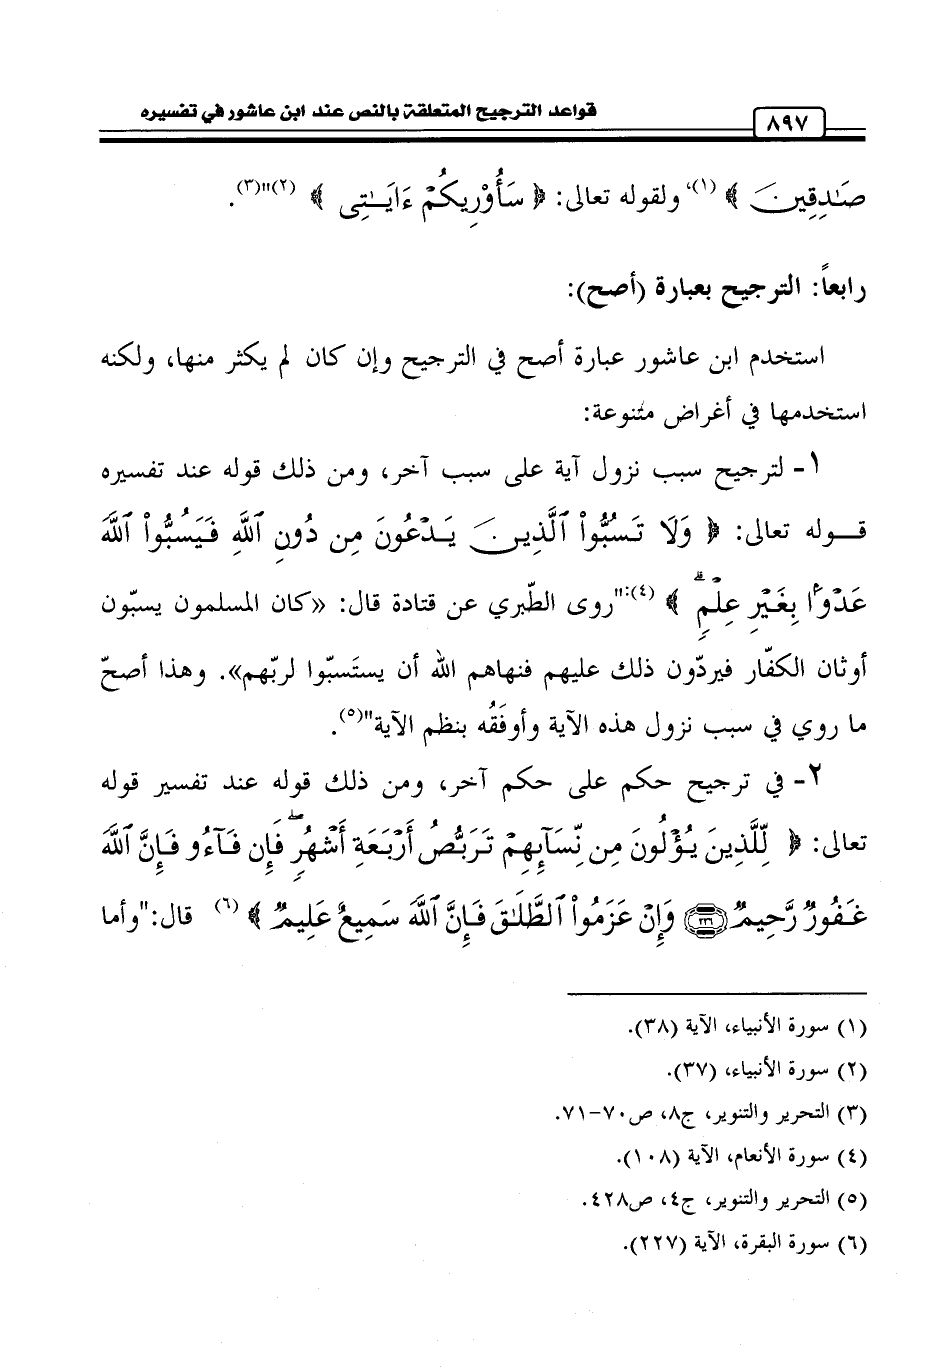 قواعد الترجيح المتعلقة بالنص عند ابن عاشور في تفسيره
٨٩٧
صَٰدِقِينَ ﴾ (١)، ولقوله تعالى: ﴿ سَأُوْرِيكُمْ ءَايَٰتِى ﴾ (٢)"(٣).
رابعاً: الترجيح بعبارة (أصح):
استخدم ابن عاشور عبارة أصح في الترجيح وإن كان لم يكثر منها، ولكنه
استخدمها في أغراض متنوعة:
١- لترجيح سبب نزول آية على سبب آخر، ومن ذلك قوله عند تفسيره
قوله تعالى: ﴿ وَلَا تَسُبُّوا۟ ٱلَّذِينَ يَدْعُونَ مِن دُونِ ٱللَّهِ فَيَسُبُّوا۟ ٱللَّهَ
عَدْوًۢا بِغَيْرِ عِلْمٍۗ ﴾ (٤):"روى الطّبري عن قتادة قال: «كان المسلمون يسبّون
أوثان الكفّار فيردّون ذلك عليهم فنهاهم الله أن يستَسبّوا لربّهم». وهذا أصحّ
ما روي في سبب نزول هذه الآية وأوفَقُه بنظم الآية"(٥).
٢- في ترجيح حكم على حكم آخر، ومن ذلك قوله عند تفسير قوله
تعالى: ﴿ لِّلَّذِينَ يُؤْلُونَ مِن نِّسَآئِهِمْ تَرَبُّصُ أَرْبَعَةِ أَشْهُرٍۖ فَإِن فَآءُو فَإِنَّ ٱللَّهَ
غَفُورٌ رَّحِيمٌ ٢٢٦ وَإِنْ عَزَمُوا۟ ٱلطَّلَٰقَ فَإِنَّ ٱللَّهَ سَمِيعٌ عَلِيمٌ ﴾ (٦) قال:"وأما
(١) سورة الأنبياء، الآية (٣٨).
(٢) سورة الأنبياء، (٣٧).
(٣) التحرير والتنوير، ج٨، ص٧٠-٧١.
(٤) سورة الأنعام، الآية (١٠٨).
(٥) التحرير والتنوير، ج٤، ص٤٢٨.
(٦) سورة البقرة، الآية (٢٢٧).